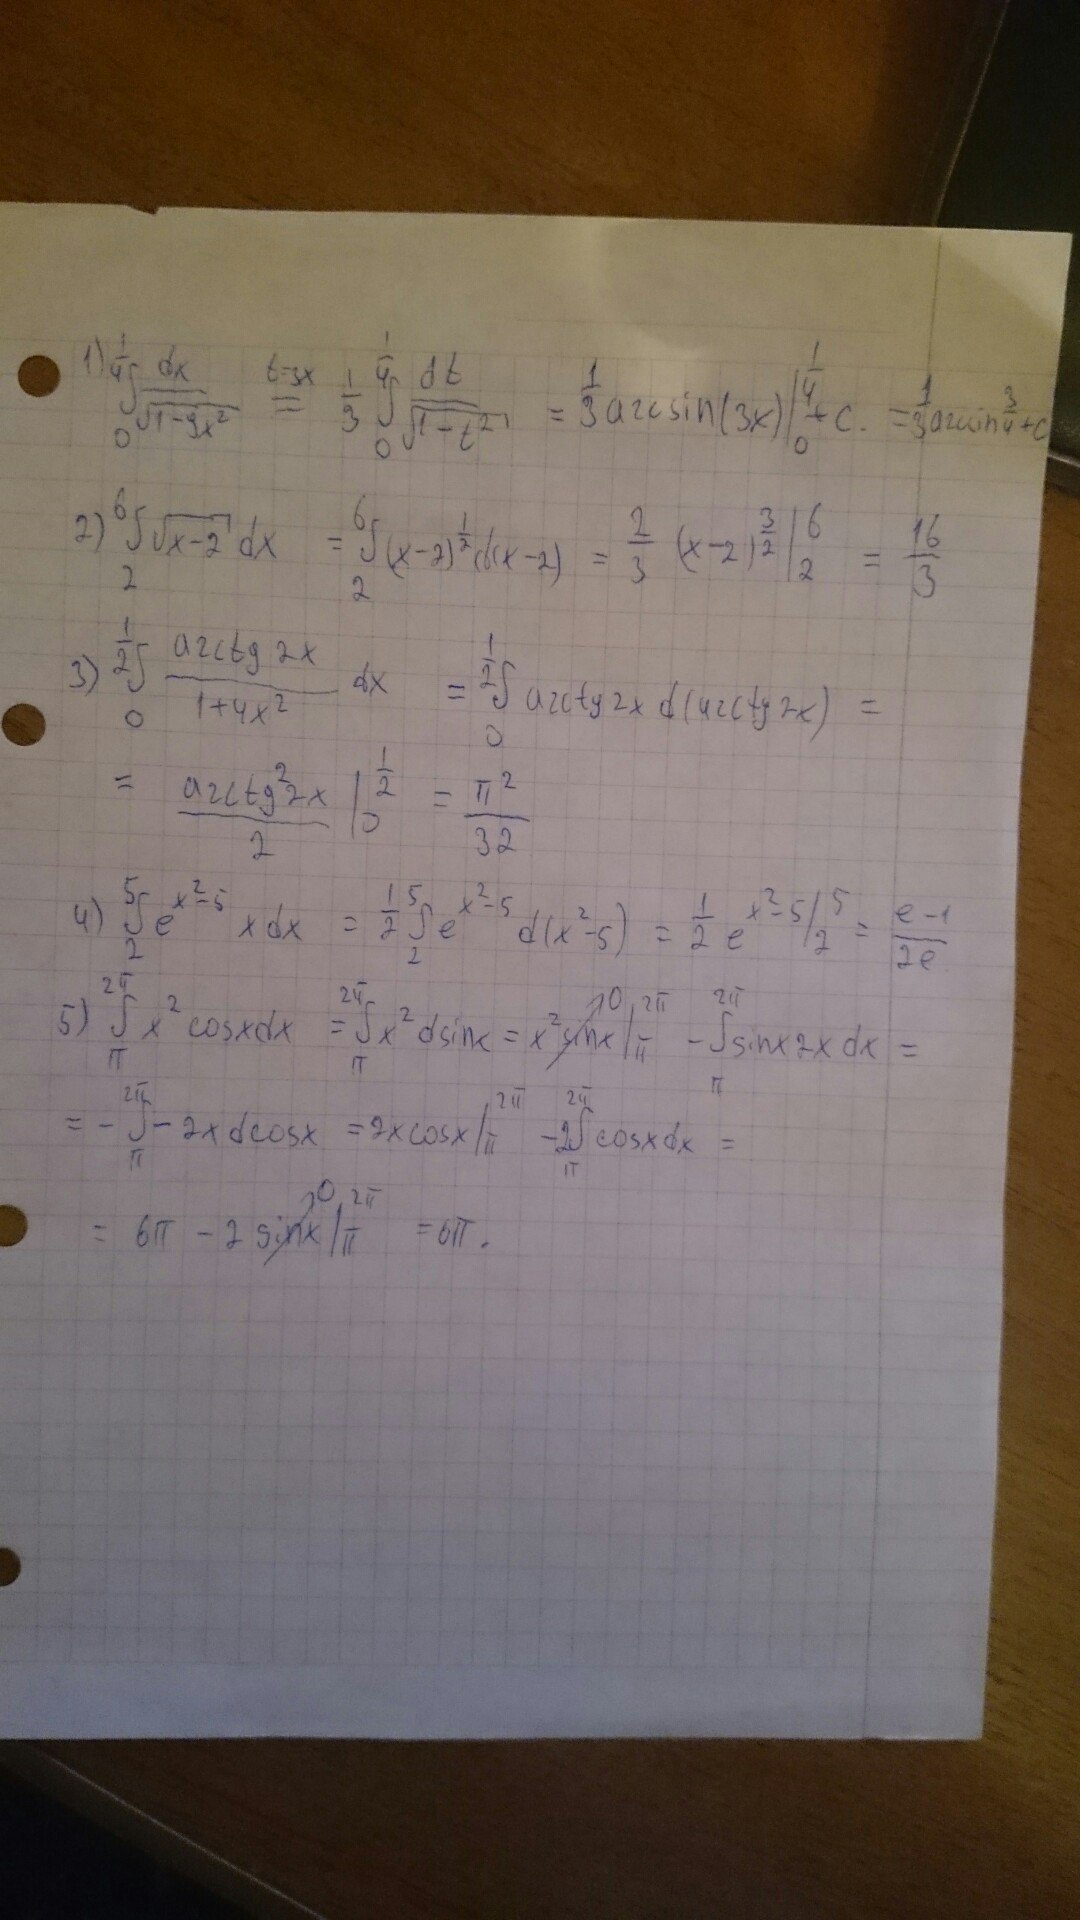 1) ∫_0^{1/4} dx/√(1-9x²) =^{t=3x} 1/3 ∫_0^{1/4} dt/√(1-t²) = 1/3 arcsin(3x)|_0^{1/4} + c. = 1/3 arcsin 3/4 + c
2) ∫_2^6 √(x-2) dx = ∫_2^6 (x-2)^{1/2} d(x-2) = 2/3 (x-2)^{3/2}|_2^6 = 16/3
3) ∫_0^{1/2} arctg 2x/(1+4x²) dx = ∫_0^{1/2} arctg 2x d(arctg 2x) =
= arctg² 2x/2 |_0^{1/2} = π²/32
4) ∫_2^5 e^{x²-5} x dx = 1/2 ∫_2^5 e^{x²-5} d(x²-5) = 1/2 e^{x²-5}|_2^5 = (e-1)/2e
5) ∫_π^{2π} x² cosx dx = ∫_π^{2π} x² d sinx = x² sinx|_π^{2π} →0 - ∫_π^{2π} sinx 2x dx =
= - ∫_π^{2π} - 2x d cosx = 2x cosx|_π^{2π} - 2∫_π^{2π} cosx dx =
= 6π - 2 sinx|_π^{2π} →0 = 6π.